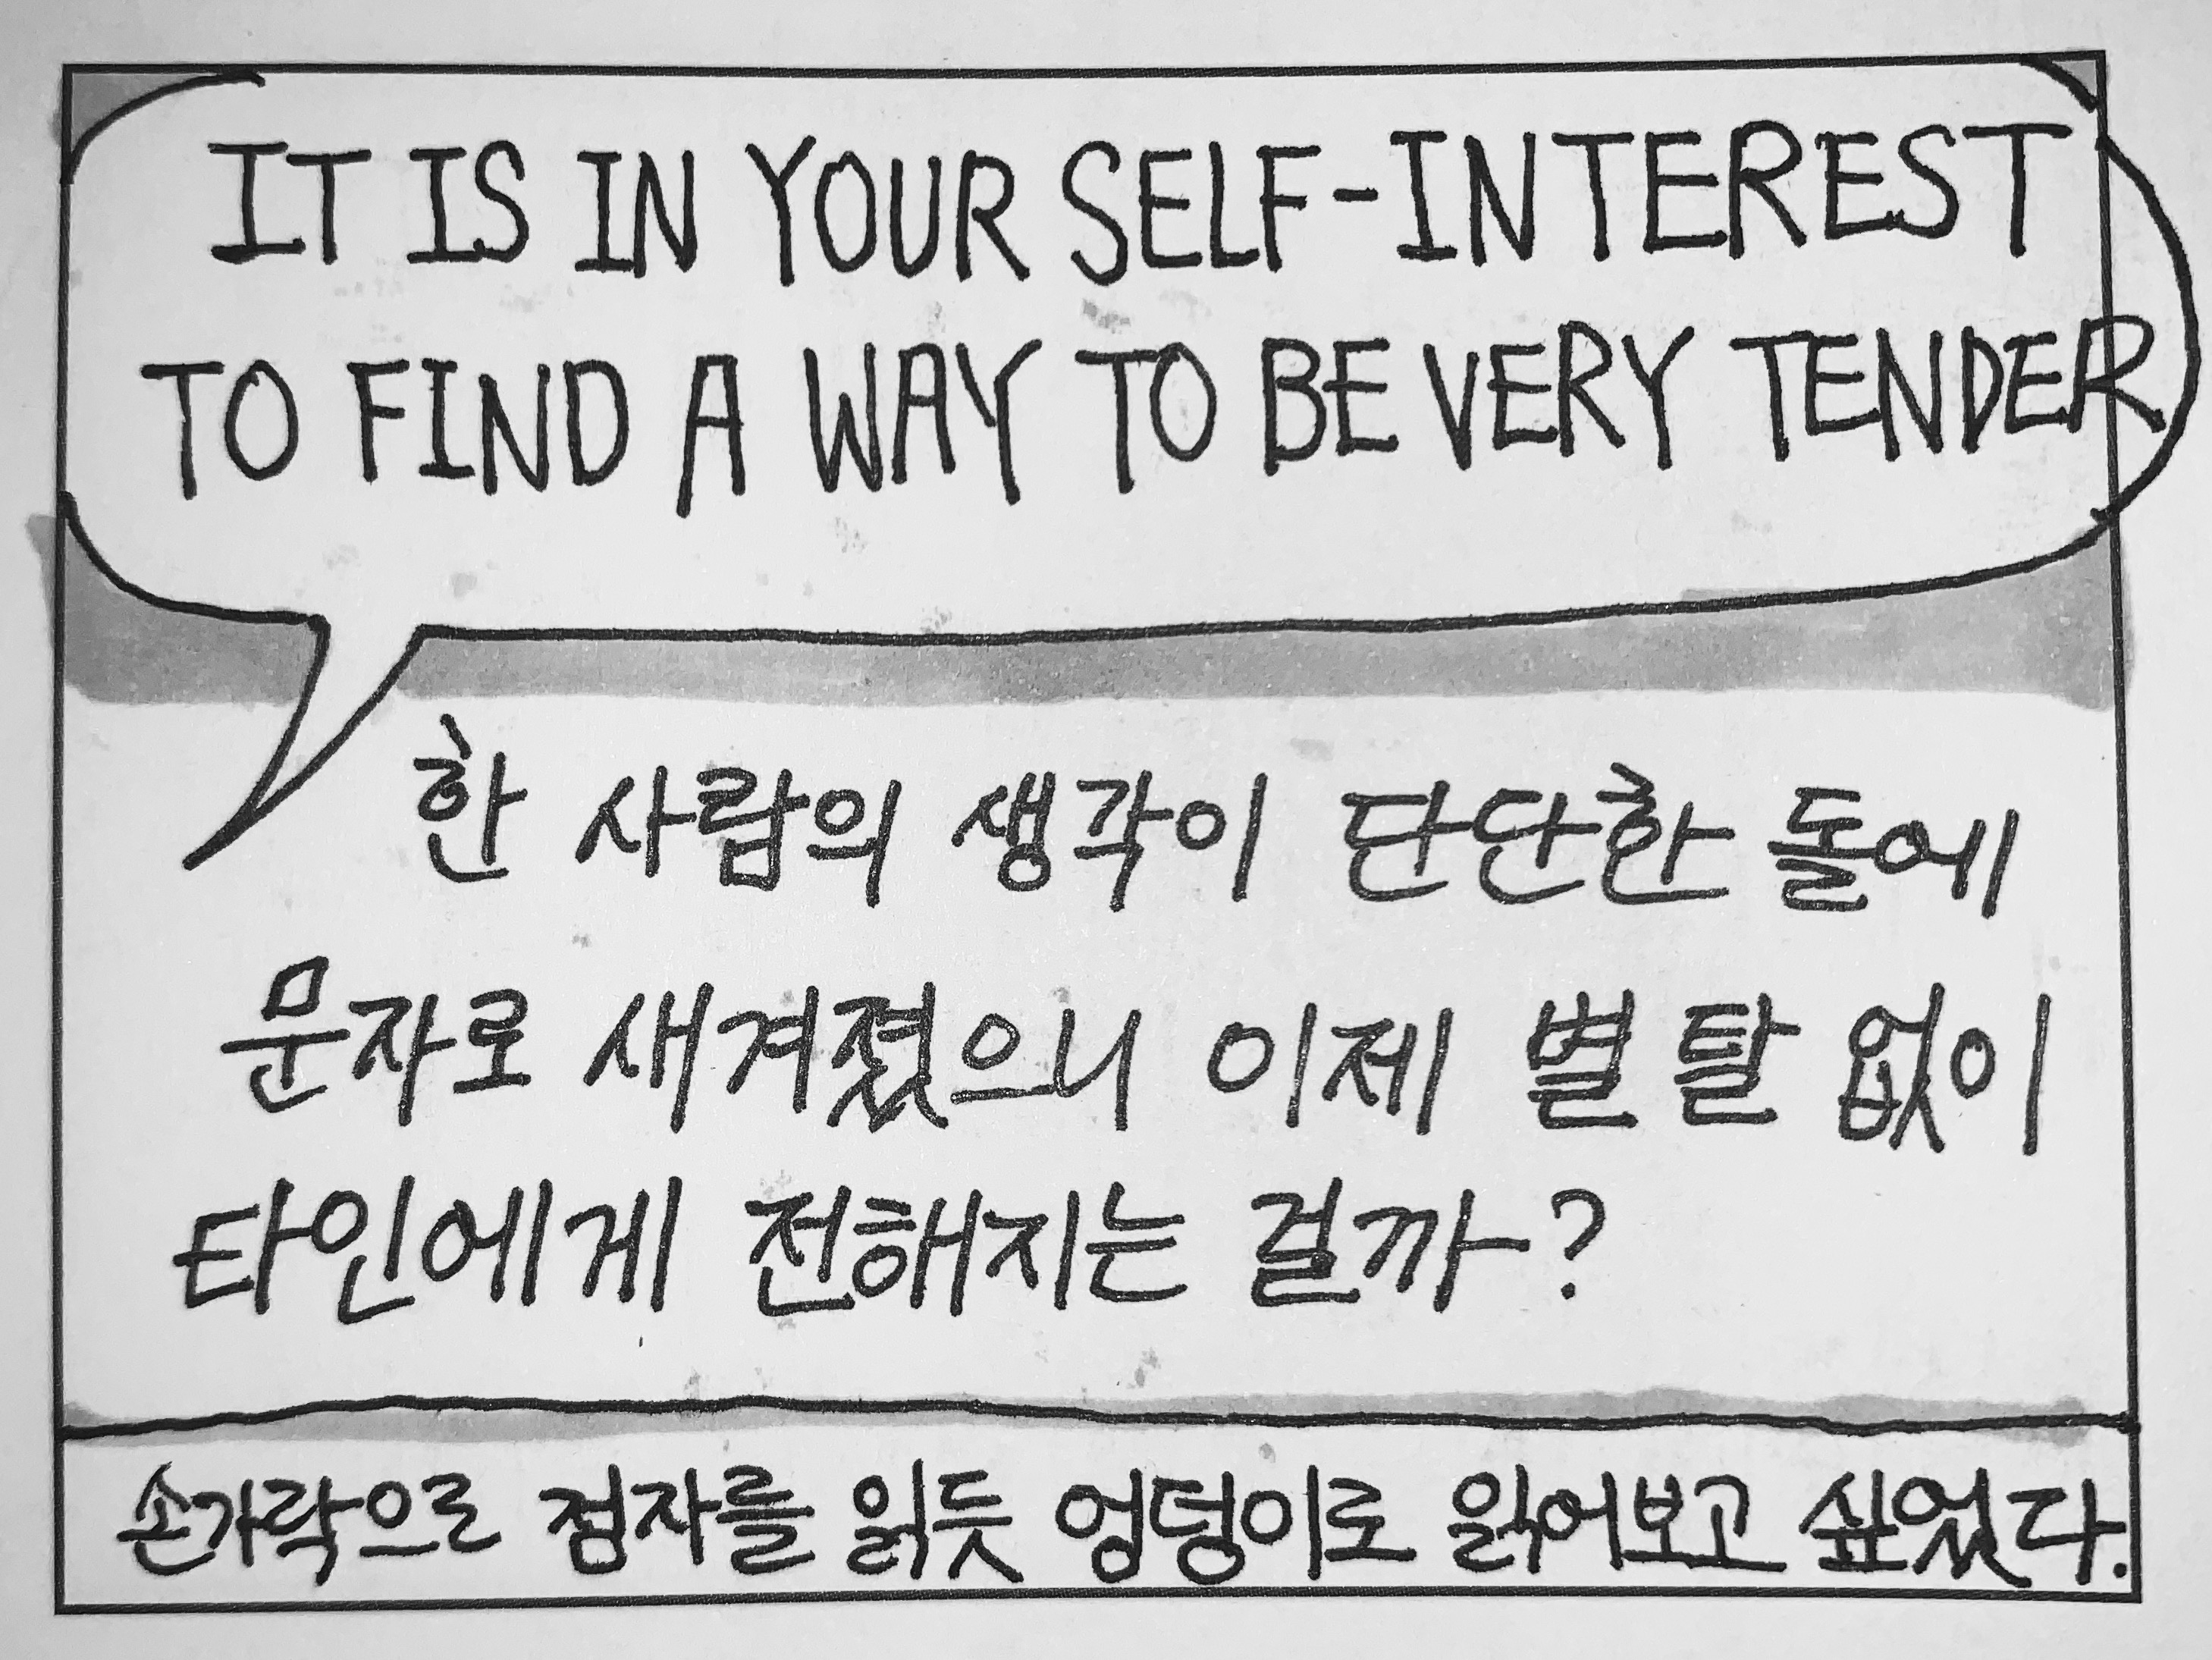 IT IS IN YOUR SELF-INTEREST
TO FIND A WAY TO BE VERY TENDER
한 사람의 생각이 단단한 돌에
문자로 새겨졌으니 이제 별 탈 없이
타인에게 전해지는 걸까?
손가락으로 점자를 읽듯 엉덩이로 읽어보고 싶었다.